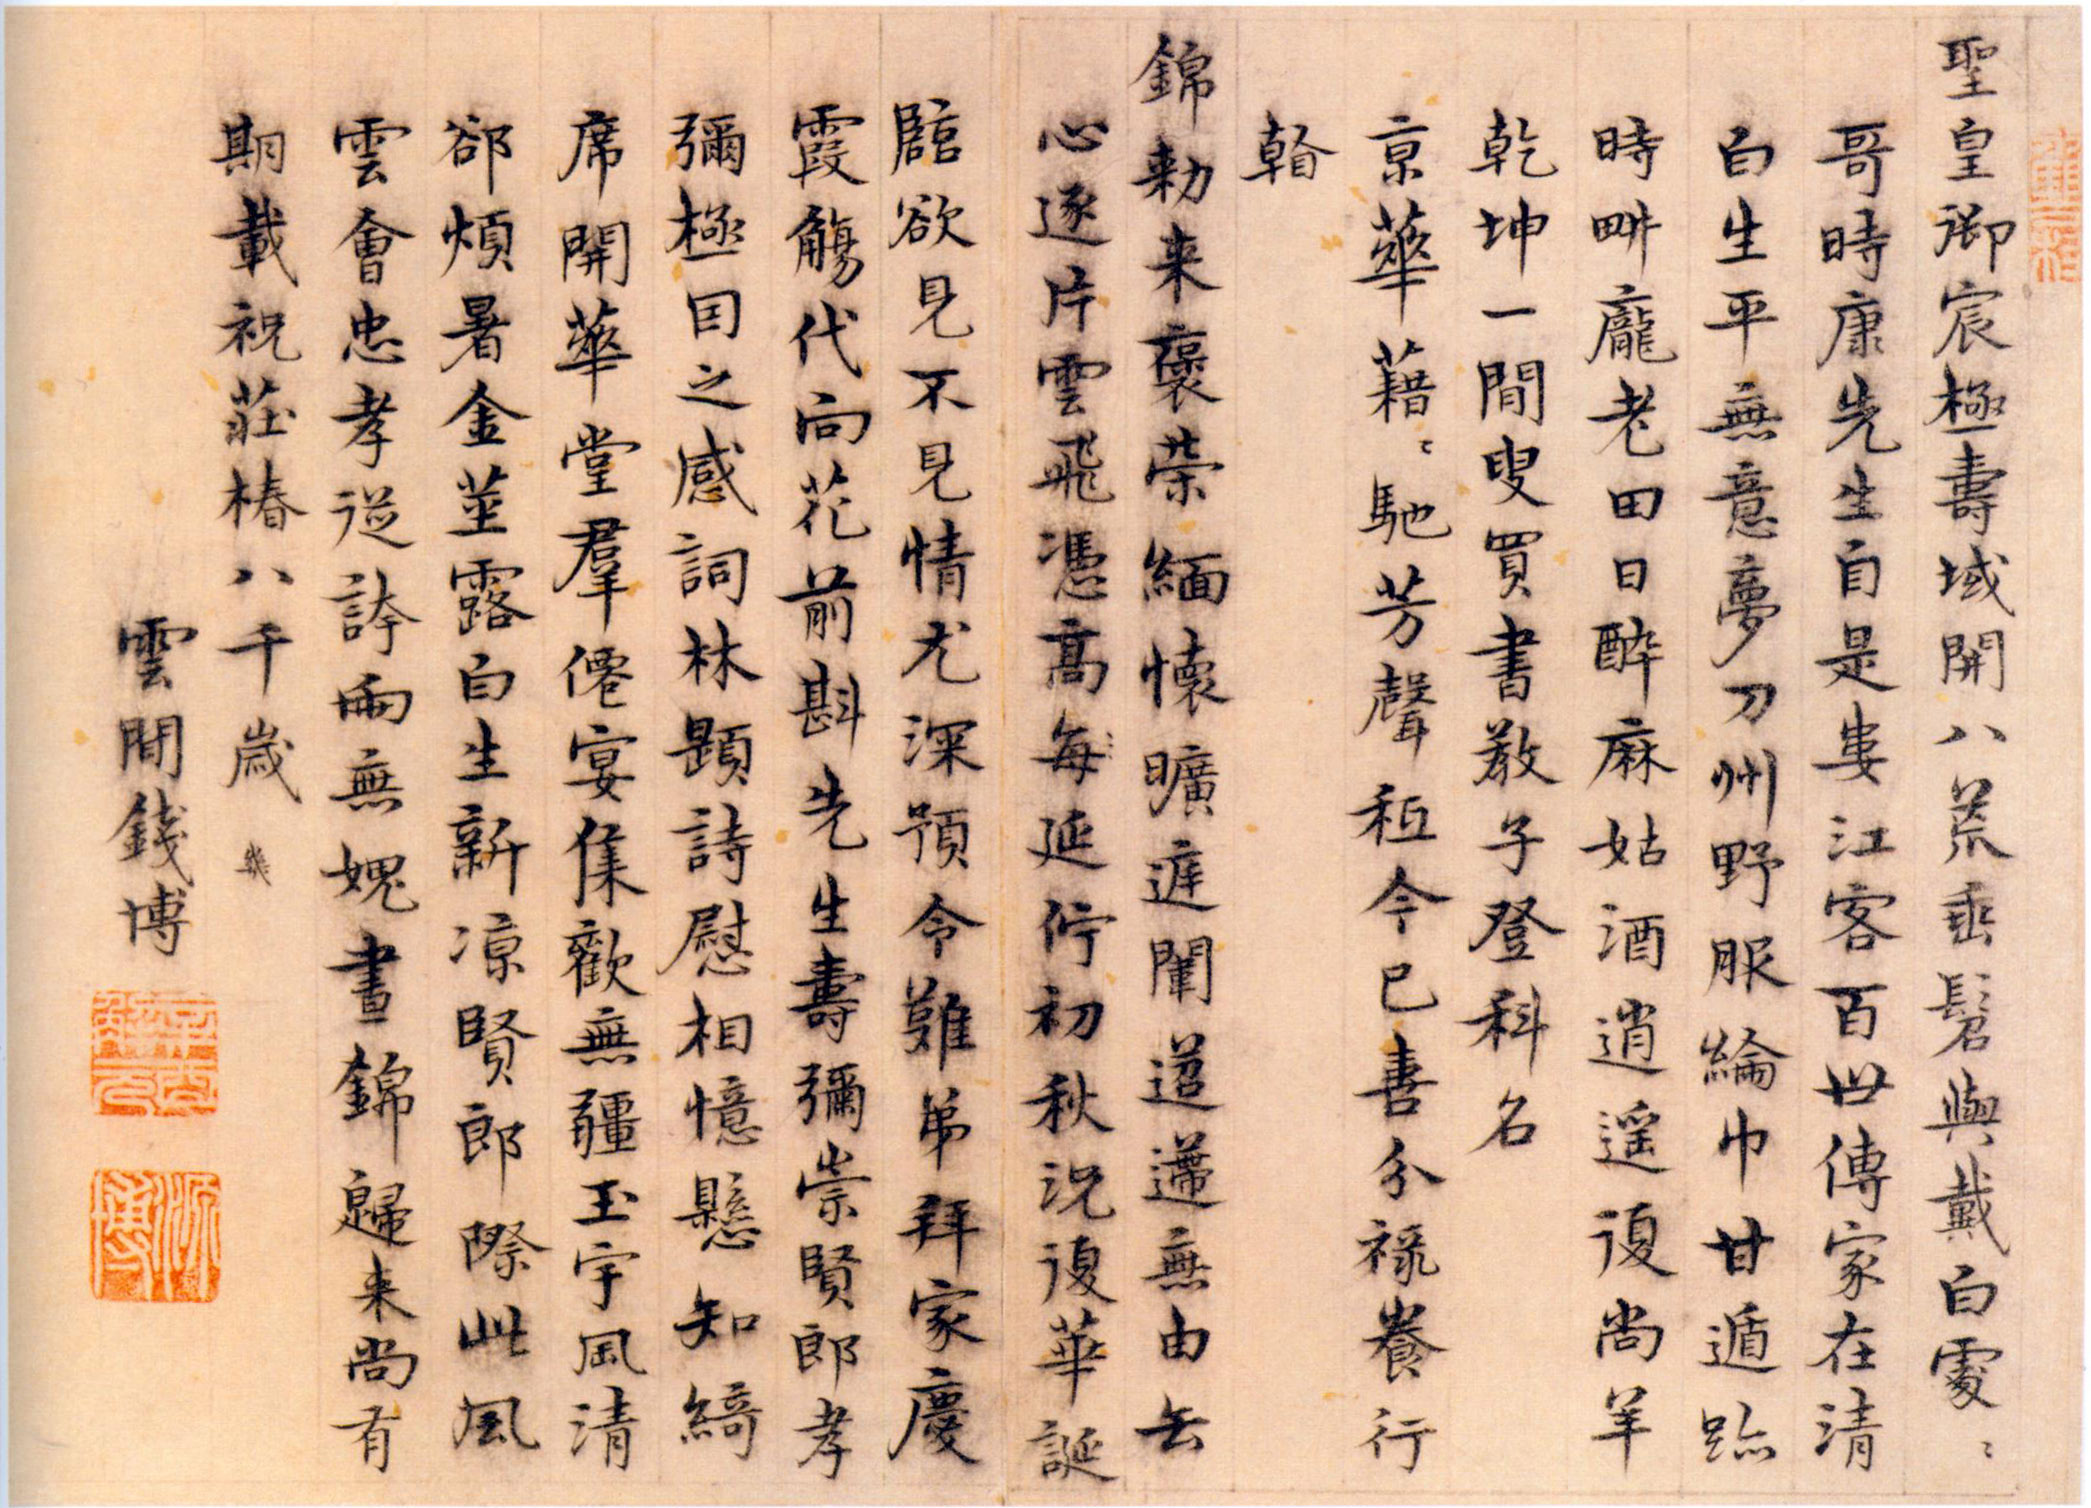 聖皇御宸極壽域開八荒垂髫與戴白處〻
哥時康先生自是婁江客百世傳家在清
白生平無意夢刀州野服綸巾甘遁跡
時畊龐老田日醉麻姑酒逍遥復尚羊
乾坤一閒叟買書教子登科名
京華藉〻馳芳聲秪今已喜分禄養行
錦勑来褒荣緬懷曠違闈迢遰無由去
心逐片雲飛憑高每延佇初秋況復華誕
臨欲見不見情尤深預令難弟拜家慶
霞觴代向花前斟先生壽彌崇賢郎孝
彌極因之感詞林題詩慰相憶懸知綺
席開華堂羣僊宴集歡無疆玉宇風清
郤煩暑金莖露白生新凉賢郎際此風
雲會忠孝從誇兩無媿晝錦歸来尚有
期載祝莊椿八千歲
雲間錢博